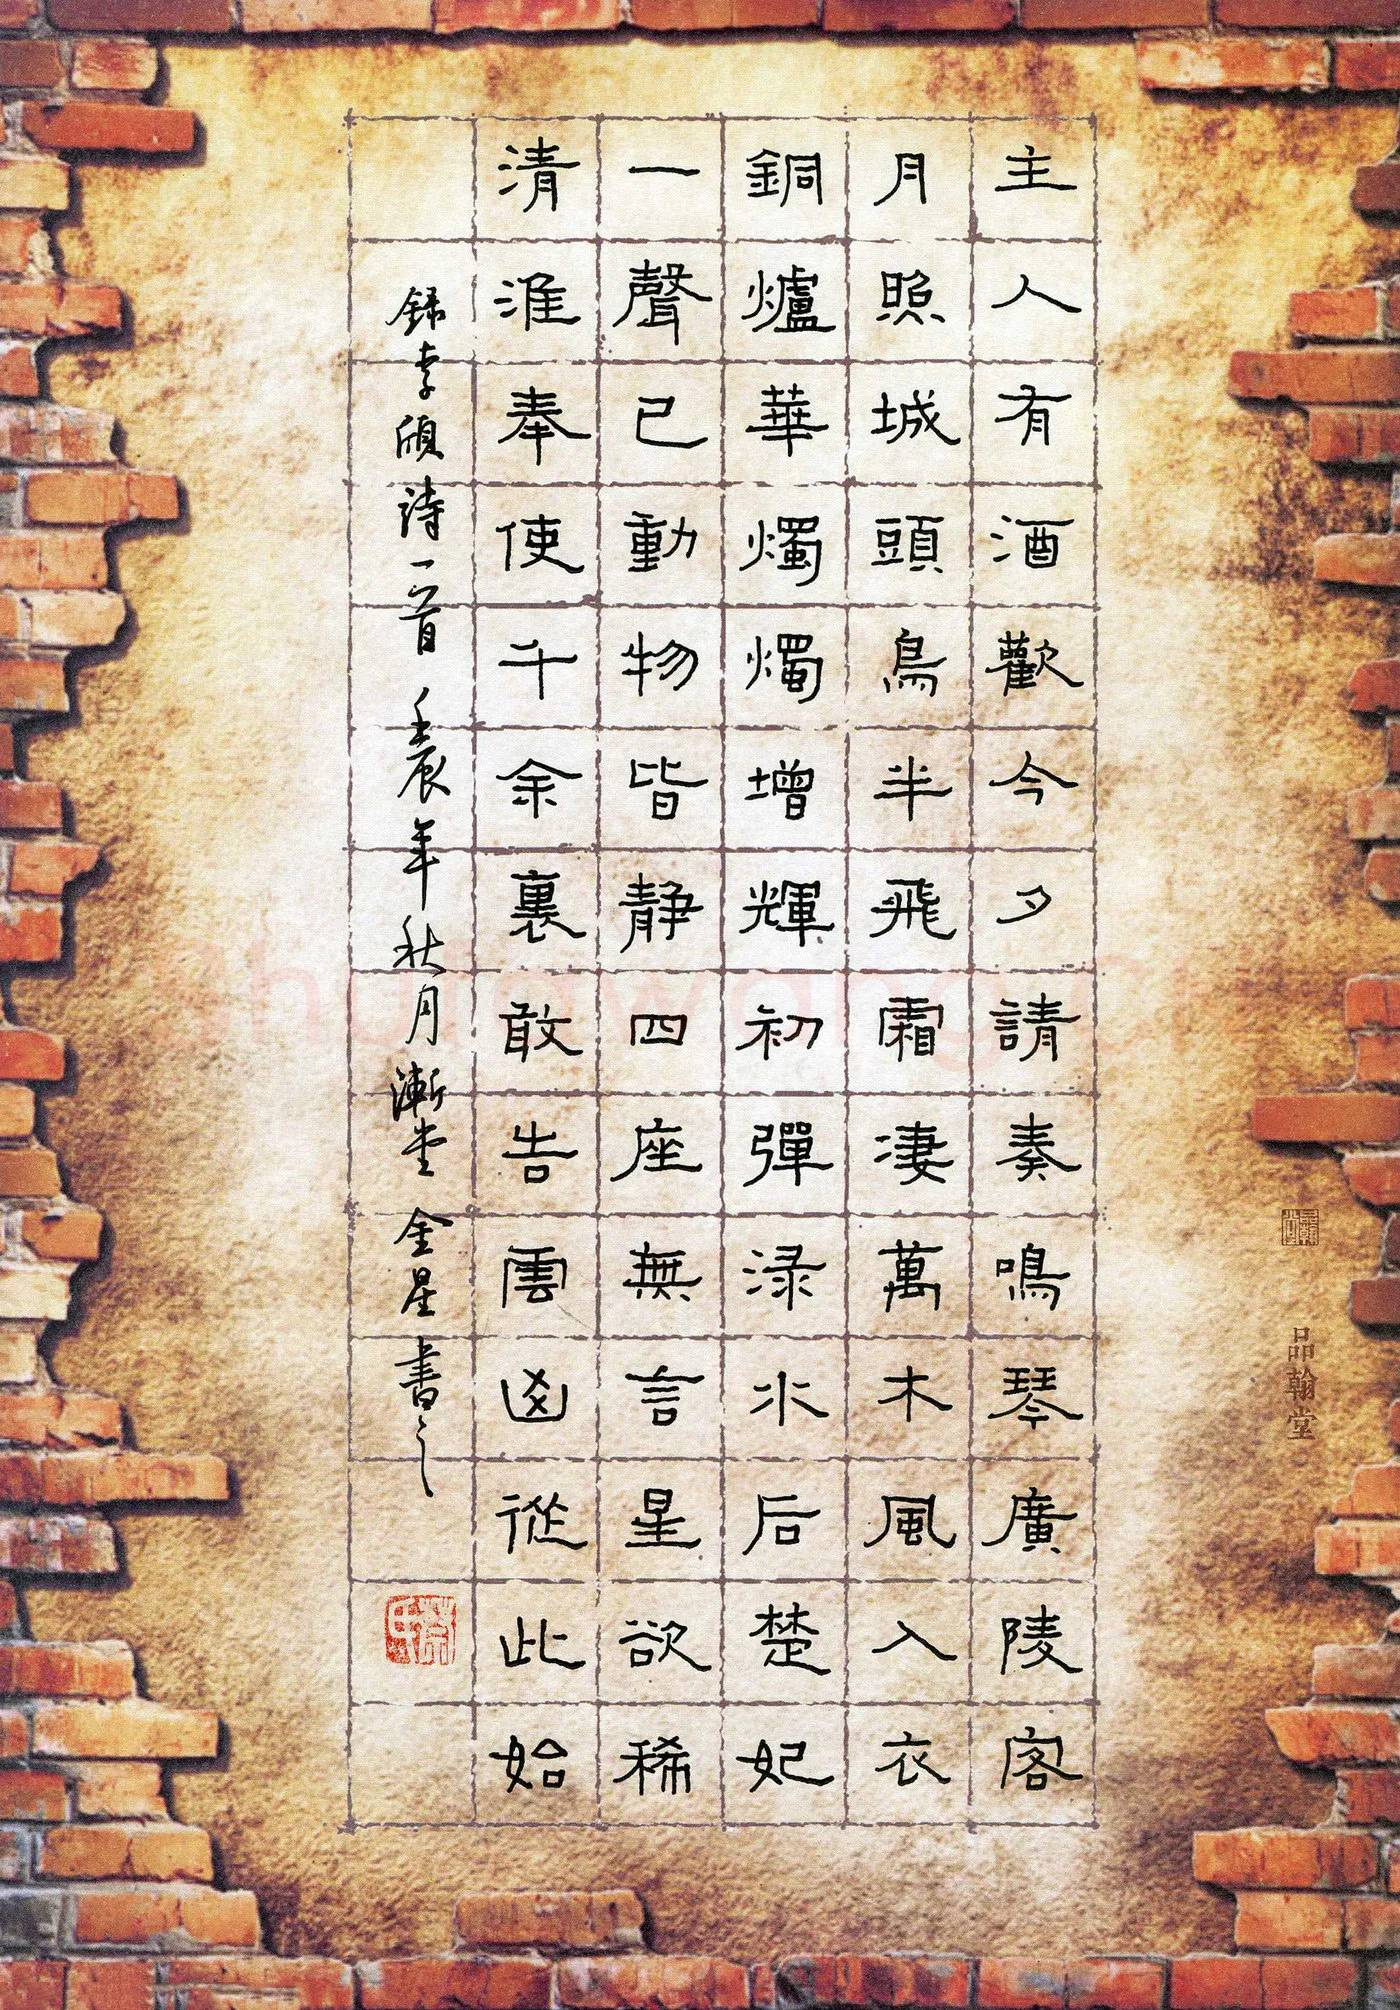 主人有酒歡今夕請奏鳴琴廣陵客
月照城頭鳥半飛霜淒萬木風入衣
銅爐華燭燭增輝初彈淥水后楚妃
一聲已動物皆靜四座無言星欲稀
清淮奉使千余裏敢告雲凶從此始
錄李頎詩一首 壬辰年秋月漸堂 金星書之
品翰堂